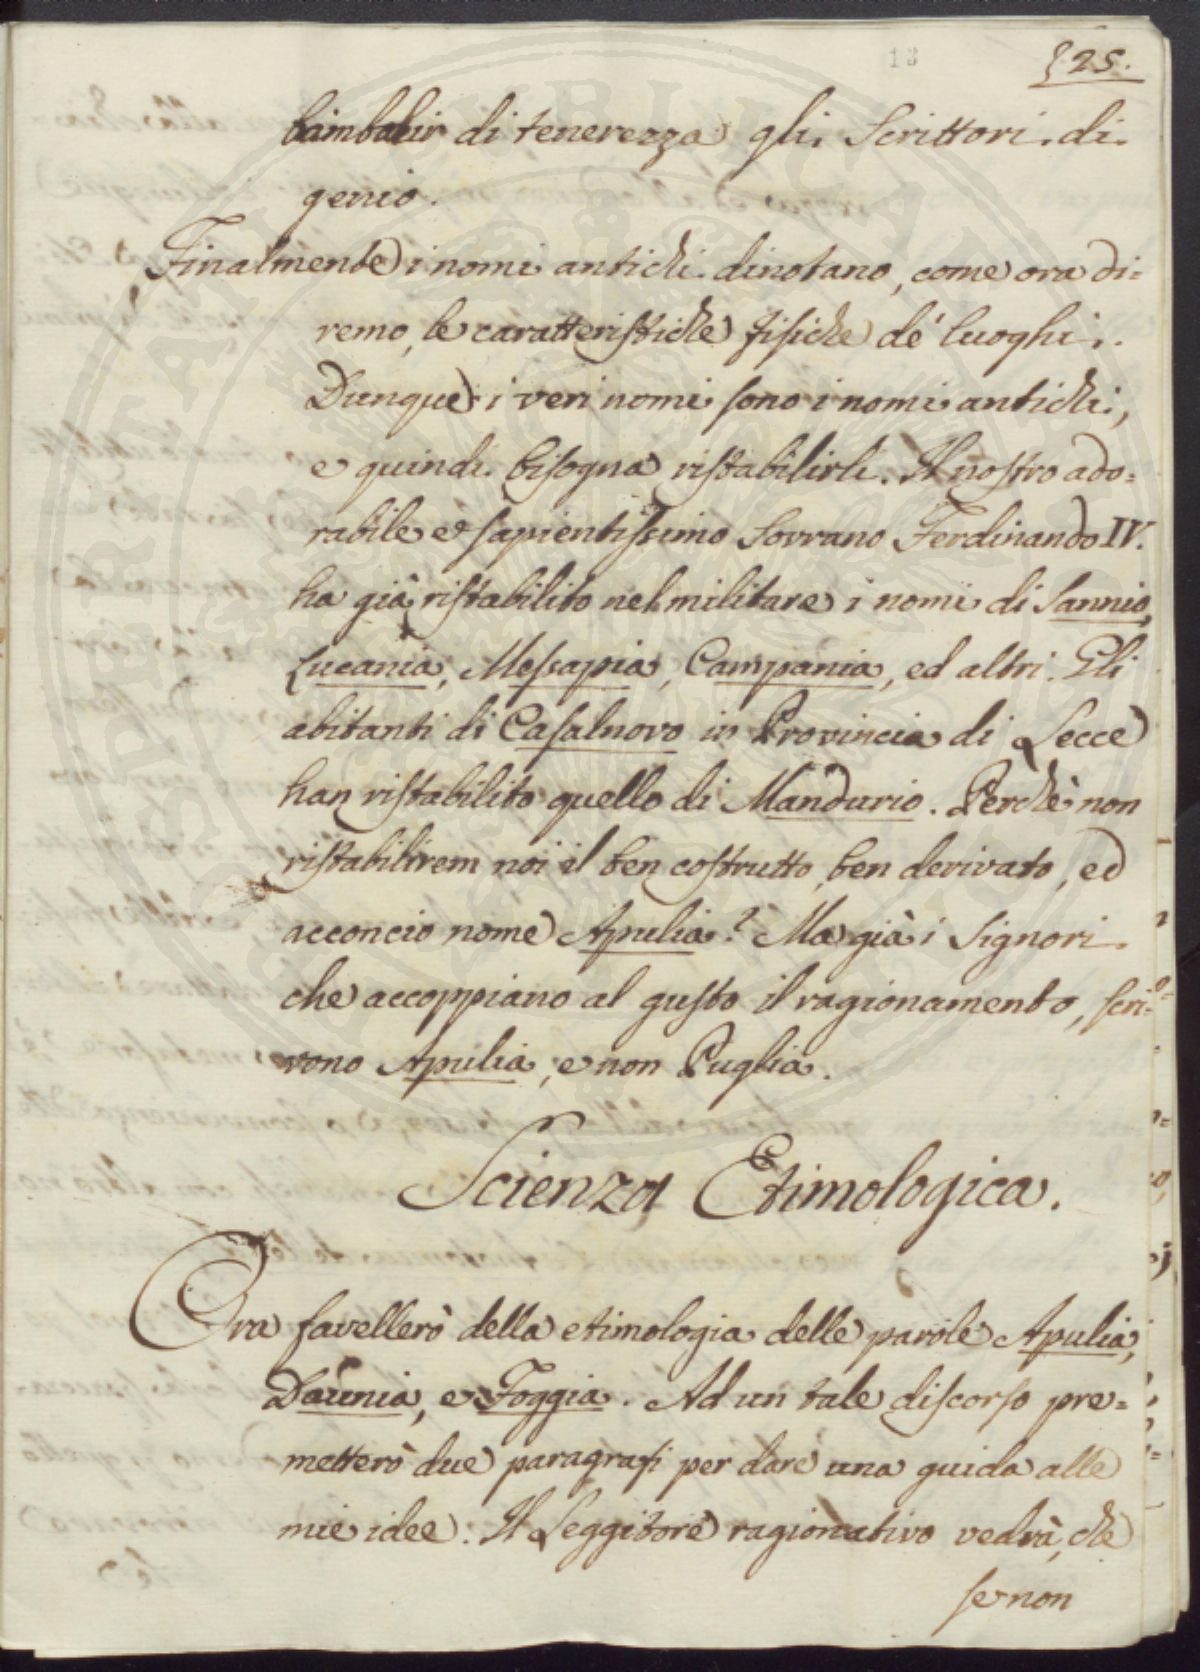 13
§ 25.
bamboleir di tenerezza gli Scrittori di
genio.
Finalmente i nomi antichi dinotano, come ora di=
remo, le caratteristiche fisiche de' luoghi.
Dunque i veri nomi sono i nomi antichi,
e quindi bisogna ristabilirli. Il nostro ado=
rabile e sapientissimo Sovrano Ferdinando IV.
ha già ristabilito nel militare i nomi di Sannio,
Lucania, Messapia, Campania, ed altri. Gli
abitanti di Casalnovo in Provincia di Lecce
han ristabilito quello di Mandurio. Perchè non
ristabilirem noi il ben costrutto, ben derivato, ed
acconcio nome Apulia? Ma già i Signori
che accoppiano al gusto il ragionamento, scri=
vono Apulia, e non Puglia.
Scienza Etimologica.
Ora favellerò della etimologia delle parole Apulia,
Daunia, e Foggia. Ad un tale discorso pre=
metterò due paragrafi per dare una guida alle
mie idee. Il Leggitore ragionativo vedrà, che
se non